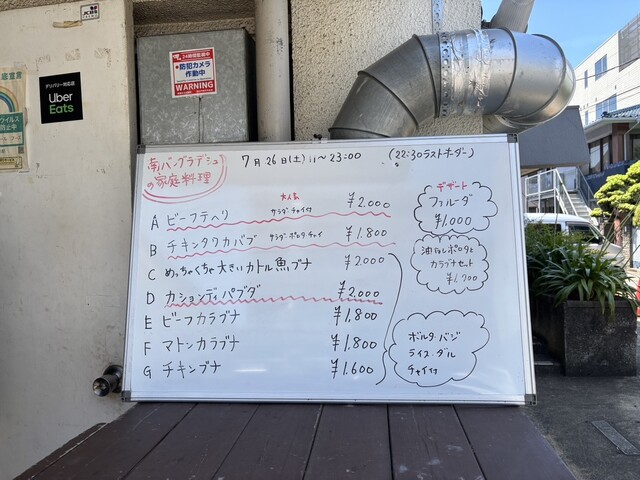 24時間監視中
防犯カメラ
作動中
WARNING
デリバリー対応店
Uber
Eats
南バングラデシュ
の家庭料理
7月26日(土) 11～23:00 (22:30ラストオーダー)
A ビーフテハリ 大人気 サラダ チャイ付 ¥2.000
B チキンタワカバブ サラダ ポロタ チャイ ¥1.800
C めっちゃくちゃ大きいカトル魚ブナ ¥2.000
D カションディパブダ ¥2.000
E ビーフカラブナ ¥1.800
F マトンカラブナ ¥1.800
G チキンブナ ¥1.600
デザート
ファルーダ
¥1.000
油なしポロタと
カラブナセット
¥1.700
ボルタ・バジ
ライス・ダル
チャイ付